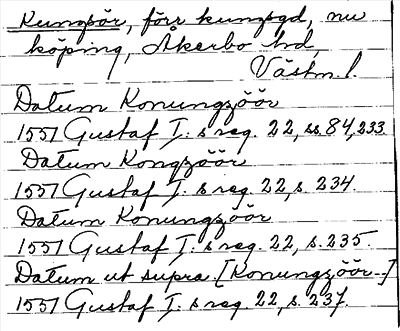 Kungsör, förr kungsgd, nu
köping, Åkerbo hd
Västm l.
Datum Konungzöör
1551 Gustaf I:s reg. 22, ss. 84, 233
Datum Kongzöör
1551 Gustaf I:s reg. 22, s. 234.
Datum Konungzöör
1551 Gustaf I:s reg. 22, s. 235.
Datum ut supra [Konungzöör-]
1551 Gustaf I:s reg. 22, s. 237.